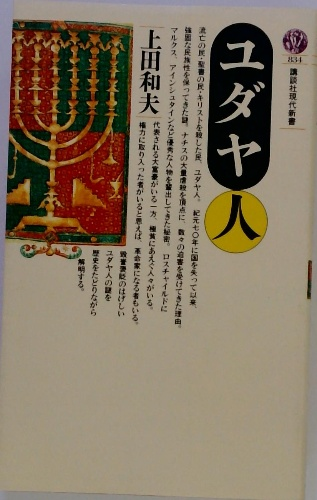 834
講談社現代新書
ユダヤ人
上田和夫
流亡の民・聖書の民・キリストを殺した民、ユダヤ人。紀元七〇年に国を失って以来、
強固な民族性を保ってきた謎。ナチスの大量虐殺を頂点に、数々の迫害を受けてきた理由。
マルクス、アインシュタインなど優秀な人物を輩出してきた秘密。ロスチャイルドに
代表される大富豪がいる一方、極貧にあえぐ人々がいる。
権力に取り入った者がいると思えば、革命家になる者もいる。
毀誉褒貶のはげしい
ユダヤ人の謎を
歴史をたどりながら
解明する。